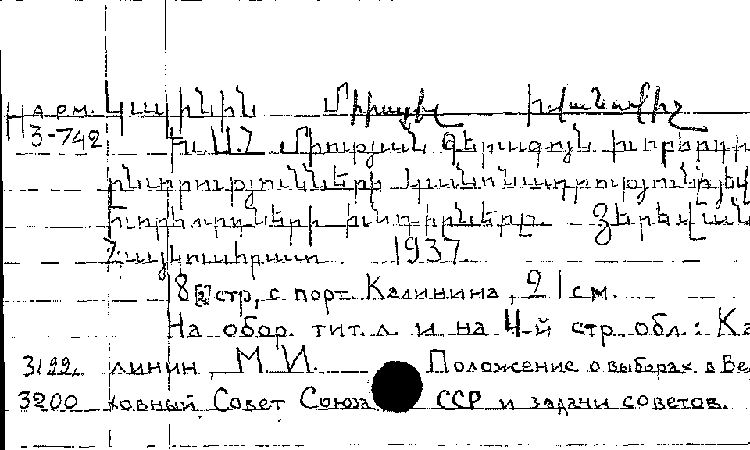 Կալինին Միխայիլ Իվանովիչ
АРМ.
3-742 ԽՍՀՄ Միության Գերագույն
ընտրությունների կանոնադրությունը
խորհուրդների խնդիրները. Յերեվան
Հայկուսհրատ 1937
8 стр, с порт Калинина, 21 см.
На обор. тит. л. и на 4-й стр обл.: Ка
3199 линин, М. И. Положение о выборах в Ве
3200 ховный Совет Союза ССР и задачи советов.